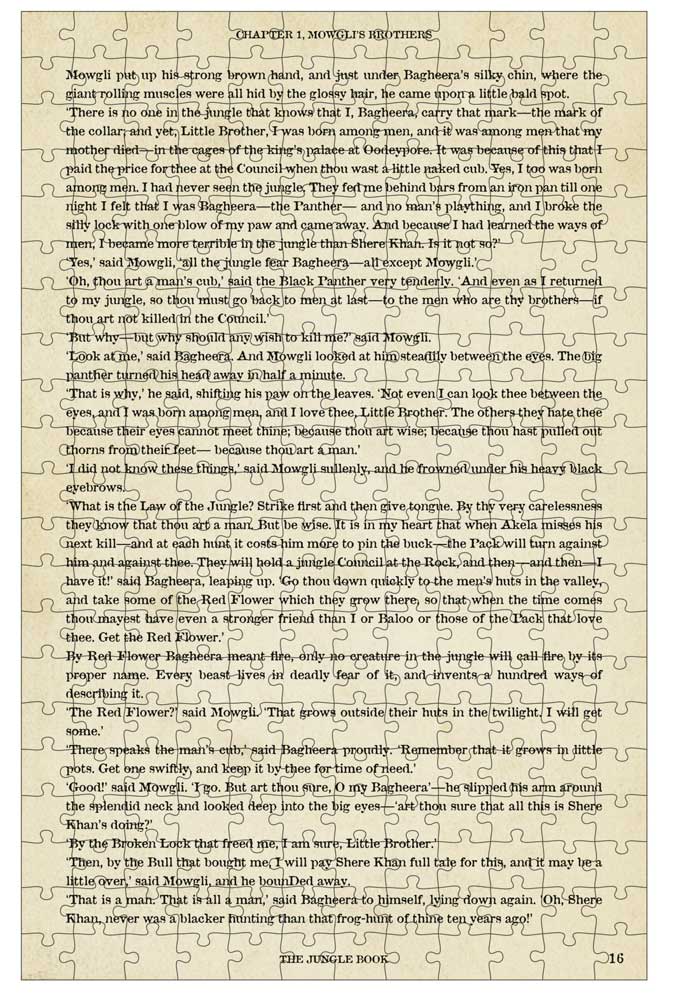 CHAPTER 1, MOWGLI'S BROTHERS
Mowgli put up his strong brown hand, and just under Bagheera's silky chin, where the
giant rolling muscles were all hid by the glossy hair, he came upon a little bald spot.
'There is no one in the jungle that knows that I, Bagheera, carry that mark—the mark of
the collar; and yet, Little Brother, I was born among men, and it was among men that my
mother died—in the cages of the king's palace at Oodeypore. It was because of this that I
paid the price for thee at the Council when thou wast a little naked cub. Yes, I too was born
among men. I had never seen the jungle. They fed me behind bars from an iron pan till one
night I felt that I was Bagheera—the Panther— and no man's plaything, and I broke the
silly lock with one blow of my paw and came away. And because I had learned the ways of
men, I became more terrible in the jungle than Shere Khan. Is it not so?'
'Yes,' said Mowgli, 'all the jungle fear Bagheera—all except Mowgli.'
'Oh, thou art a man's cub,' said the Black Panther very tenderly. 'And even as I returned
to my jungle, so thou must go back to men at last—to the men who are thy brothers—if
thou art not killed in the Council.'
'But why—but why should any wish to kill me?' said Mowgli.
'Look at me,' said Bagheera. And Mowgli looked at him steadily between the eyes. The big
panther turned his head away in half a minute.
'That is why,' he said, shifting his paw on the leaves. 'Not even I can look thee between the
eyes, and I was born among men, and I love thee, Little Brother. The others they hate thee
because their eyes cannot meet thine; because thou art wise; because thou hast pulled out
thorns from their feet— because thou art a man.'
'I did not know these things,' said Mowgli sullenly, and he frowned under his heavy black
eyebrows.
'What is the Law of the Jungle? Strike first and then give tongue. By thy very carelessness
they know that thou art a man. But be wise. It is in my heart that when Akela misses his
next kill—and at each hunt it costs him more to pin the buck—the Pack will turn against
him and against thee. They will hold a jungle Council at the Rock, and then—and then—I
have it!' said Bagheera, leaping up. 'Go thou down quickly to the men's huts in the valley,
and take some of the Red Flower which they grow there, so that when the time comes
thou mayest have even a stronger friend than I or Baloo or those of the Pack that love
thee. Get the Red Flower.'
By Red Flower Bagheera meant fire, only no creature in the jungle will call fire by its
proper name. Every beast lives in deadly fear of it, and invents a hundred ways of
describing it.
'The Red Flower?' said Mowgli. 'That grows outside their huts in the twilight. I will get
some.'
'There speaks the man's cub,' said Bagheera proudly. 'Remember that it grows in little
pots. Get one swiftly, and keep it by thee for time of need.'
'Good!' said Mowgli. 'I go. But art thou sure, O my Bagheera'—he slipped his arm around
the splendid neck and looked deep into the big eyes—'art thou sure that all this is Shere
Khan's doing?'
'By the Broken Lock that freed me, I am sure, Little Brother.'
'Then, by the Bull that bought me, I will pay Shere Khan full tale for this, and it may be a
little over,' said Mowgli, and he bounDed away.
'That is a man. That is all a man,' said Bagheera to himself, lying down again. 'Oh, Shere
Khan, never was a blacker hunting than that frog-hunt of thine ten years ago!'
THE JUNGLE BOOK
16